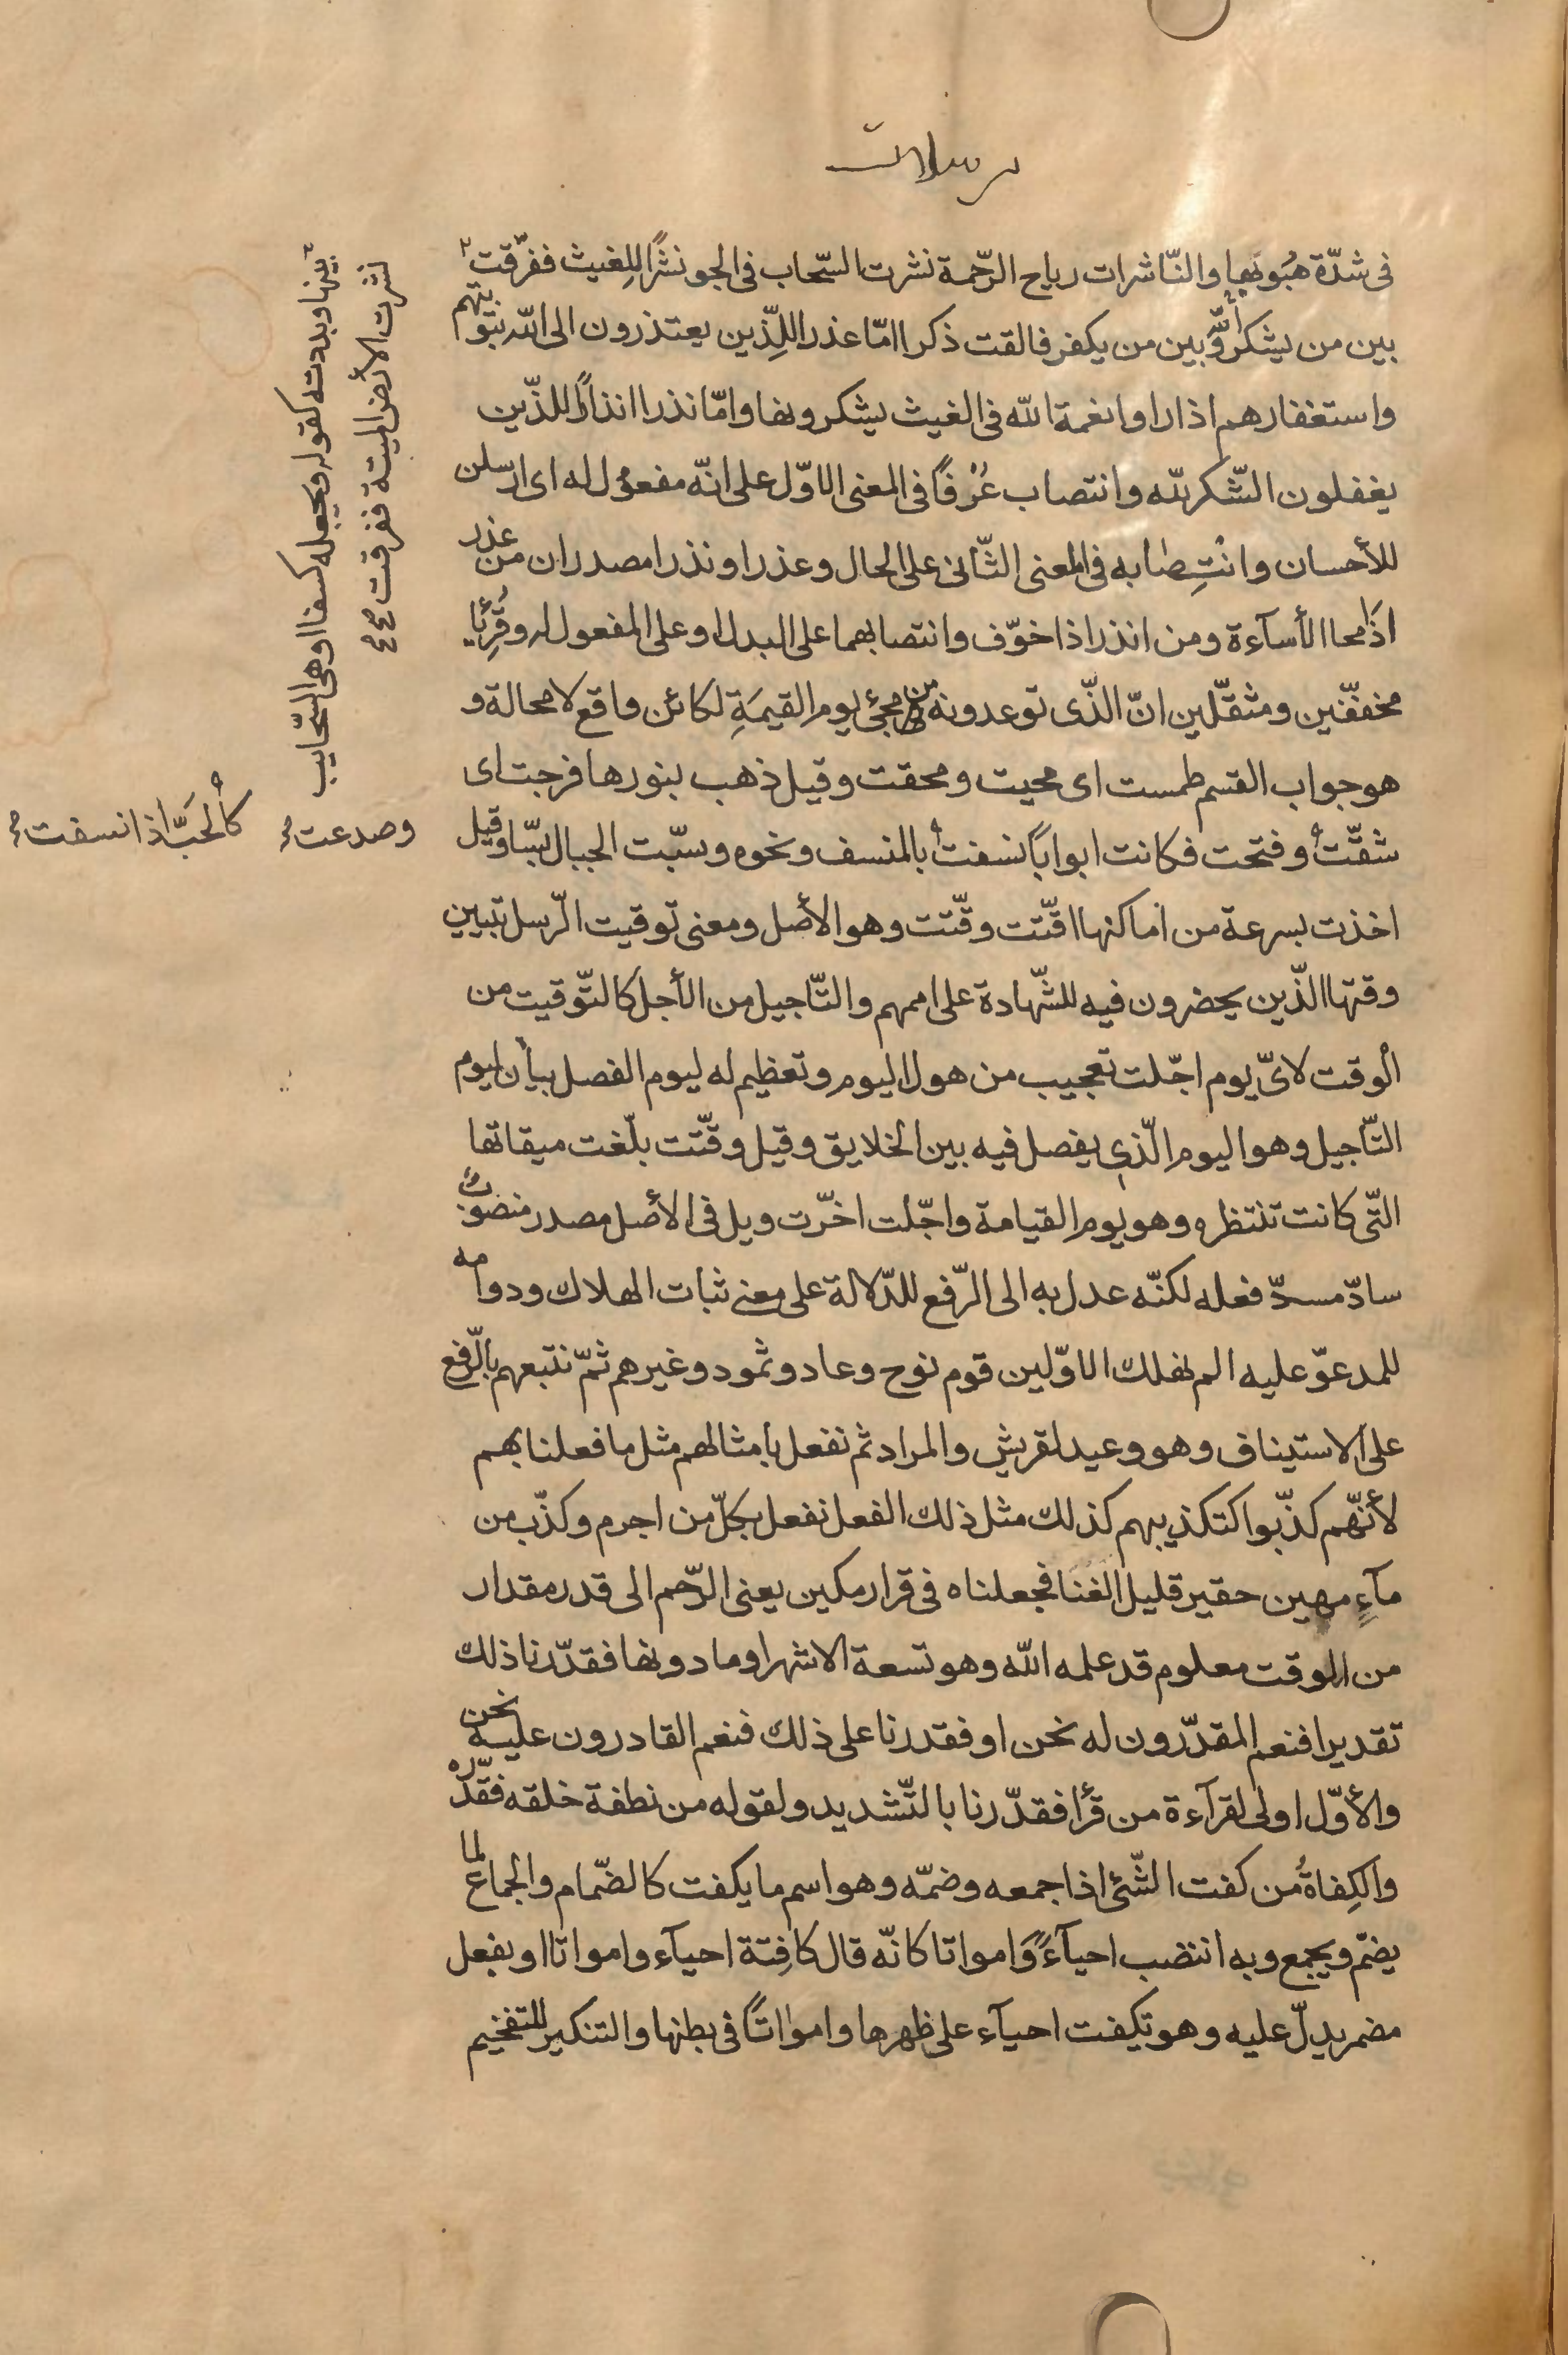 مرسلات
فى شدّة هبُوبَها والنّاشرات رياح الرّحمة نشرت السّحاب فى الجو نشرًا لِلغيث ففرّقت
بين من يشكر الله وبين من يكفر فالقت ذكرا امّا عذرا للِّذين يعتذرون الى الله بتوبتهم
واستغفارهم اذا راوا نغمة الله فى الغيث يشكرونها وامّا نذرا انذارًا للذّين
يغفلون الشّكر لله وانتصاب عُرْفًا فى المعنى الاوّل على انّه مفعول له اى ارسلن
للأحسان وانْتِصابه فى المعنى الثّانى على الحال وعذرا ونذرا مصدران من عذر
اذَا محا الأسآءة ومن انذر اذا خوّف وانتصابهما على البدل او على المفعول له وقُرِئَا
مخففّين ومثقّلين انّ الذّى توعدونه من مجئ يوم القيمَةِ لكائن واقع لا محالة و
هو جواب القسم طمست اى محيت ومحقت وقيل ذهب بنورها فرجت اى
شقّت وفتحت فكانت ابوابًا نسفت بالمنسف ونحوه وبسّت الجبال بسّا وقيل
اخذت بسرعة من اماكنها اقّتت وقّتت وهو الأصل ومعنى توقيت الرّسل تبيين
وقتها الذّين يحضرون فيه للشّهادة على اممهم والتّاجيل من الأجل كالتّوقيت من
الْوقت لاىّ يوم اجّلت تعجيب من هول اليوم وتعظيم له ليوم الفصل بيان ليوم
التّاجيل وهو اليوم الّذى يفصل فيه بين الخلايق وقيل وقّتت بلّغت ميقاتها
التّى كانت تنتظره وهو يوم القيامة واجّلت اخرّت ويل فى الأصل مصدر منصوب
سادّ مسدّ فعله لكنّه عدل به الى الرّفع للدّلالة على معنى ثبات الهلاك ودوامه
للمدعوّ عليه الم نهلك الاوّلين قوم نوح وعاد وثمود وغيرهم ثمّ نتبعهم بالرّفع
على الاستيناف وهو وعيد لقريش والمراد ثم نفعل بأمثالهم مثل ما فعلنا بهم
لأنّهم كذّبوا كتكذيبهم كذلك مثل ذلك الفعل نفعل بكلّ من اجرم وكذّب من
مآءٍ مهين حقير قليل الغَنَا فجعلناه فى قرار مكين يعنى الرّحم الى قدر مقدار
من الوقت معلوم قد علمه الله وهو تسعة الاشهر او ما دونها فقدّرنا ذلك
تقديرا فنعم المقدّرون له نحن او فقدرنا على ذلك فنعم القادرون عليه نحن
والأوّل اولى لقرآءة من قرأ فقدّرنا بالتّشديد ولقوله من نطفة خلقه فقدّره
والكِفاةُ من كفت الشّئ اذا جمعه وضمّه وهو اسم ما يكفت كالضّمام والجماع لما
يضمّ ويجمع وبه انتضب احيآءً وَامواتا كانّه قال كافِتة احيآء وامواتا او بفعل
مضمر يدلّ عليه وهو تكفت احيآء على ظهرها وامواتًا فى بطنها والتنكير للتفخيم
نشرت الأرض الميتة ففرقت
بينها وبددته كقوله ويجعله كسفا او هى السّحايب
وصدعت
كالحَبّ اذا نسفت